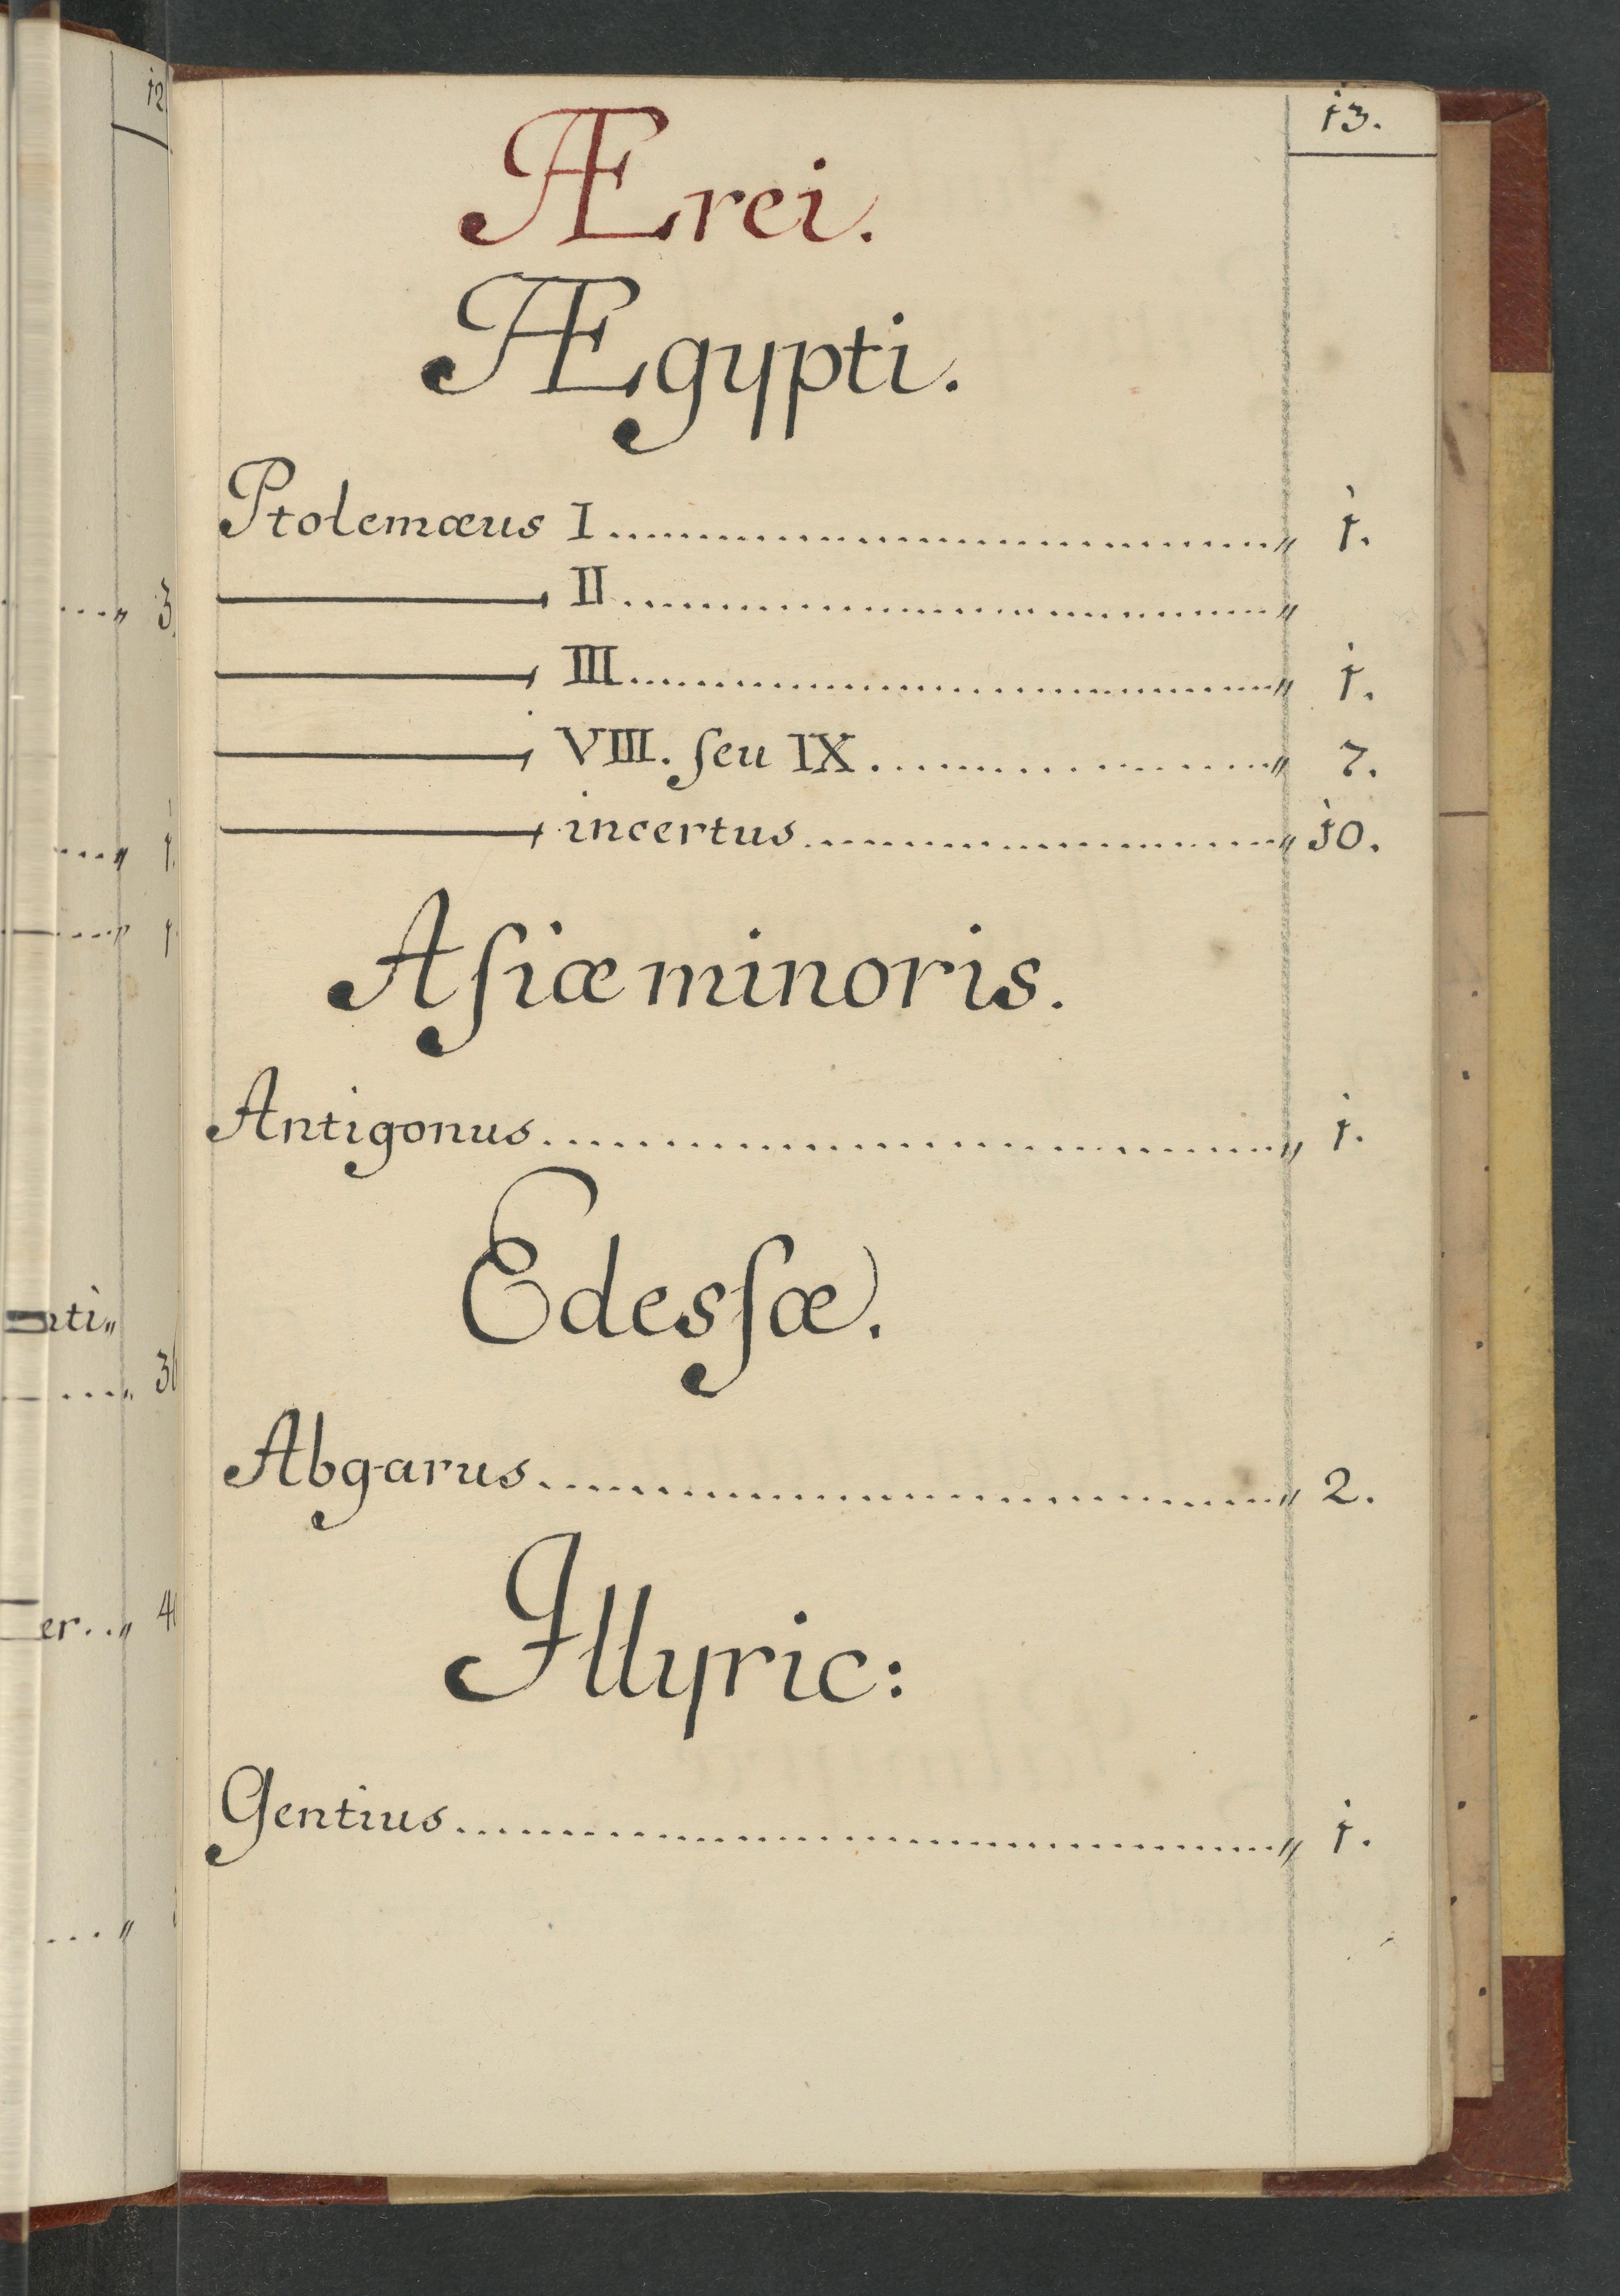 13.
Ærei.
Ægypti.
Ptolemæus I........................................„ 1.
———— II........................................„
———— III........................................„ 1.
———— VIII. ſeu IX........................„ 7.
———— incertus..............................„ 10.
Aſiæ minoris.
Antigonus........................................„ 1.
Edesſæ.
Abgarus........................................„ 2.
Illyric:
Gentius........................................„ 1.